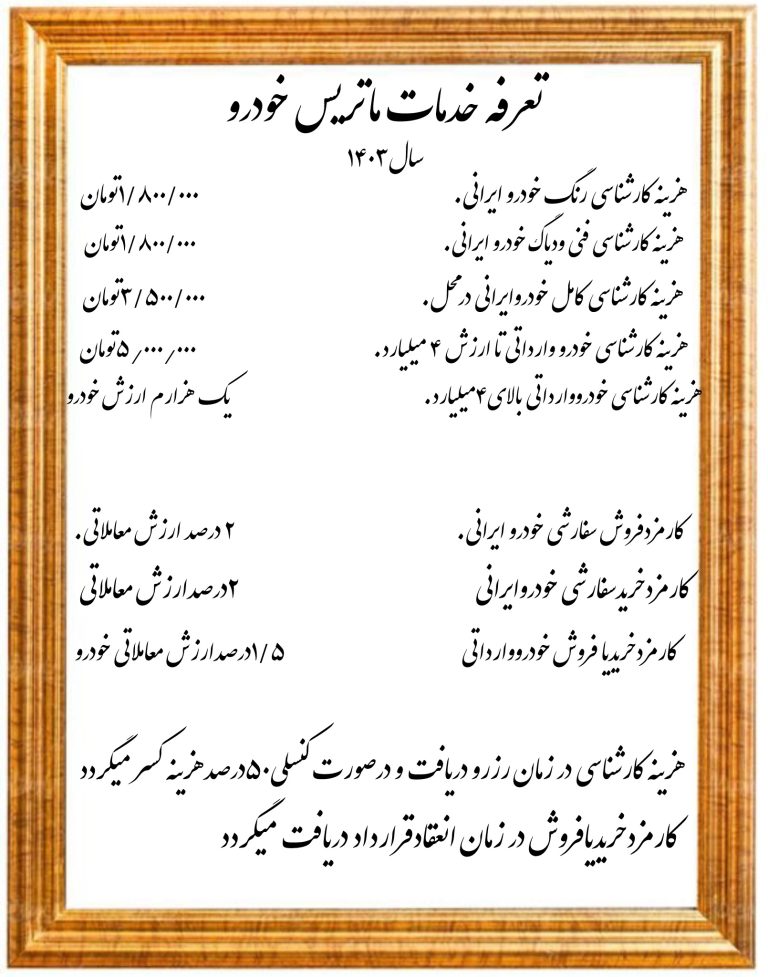 تعرفه خدمات ماتریس خودرو
سال ۱۴۰۳
هزینه کارشناسی رنگ خودرو ایرانی. ۱/۸۰۰/۰۰۰تومان
هزینه کارشناسی فنی ودیاگ خودرو ایرانی. ۱/۸۰۰/۰۰۰تومان
هزینه کارشناسی کامل خودروایرانی درمحل. ۳/۵۰۰/۰۰۰تومان
هزینه کارشناسی خودرو وارداتی تا ارزش ۴ میلیارد. ۵٫۰۰۰٫۰۰۰تومان
هزینه کارشناسی خودرووارداتی بالای۴میلیارد. یک هزارم ارزش خودرو
کارمزدفروش سفارشی خودرو ایرانی. ۲ درصد ارزش معاملاتی.
کارمزدخریدسفارشی خودروایرانی ۲درصدارزش معاملاتی
کارمزدخریدیا فروش خودرووارداتی ۱/۵درصدارزش معاملاتی خودرو
هزینه کارشناسی در زمان رزرو دریافت و درصورت کنسلی۵۰درصدهزینه کسر میگردد
کارمزدخریدیافروش در زمان انعقادقرارداد دریافت میگردد